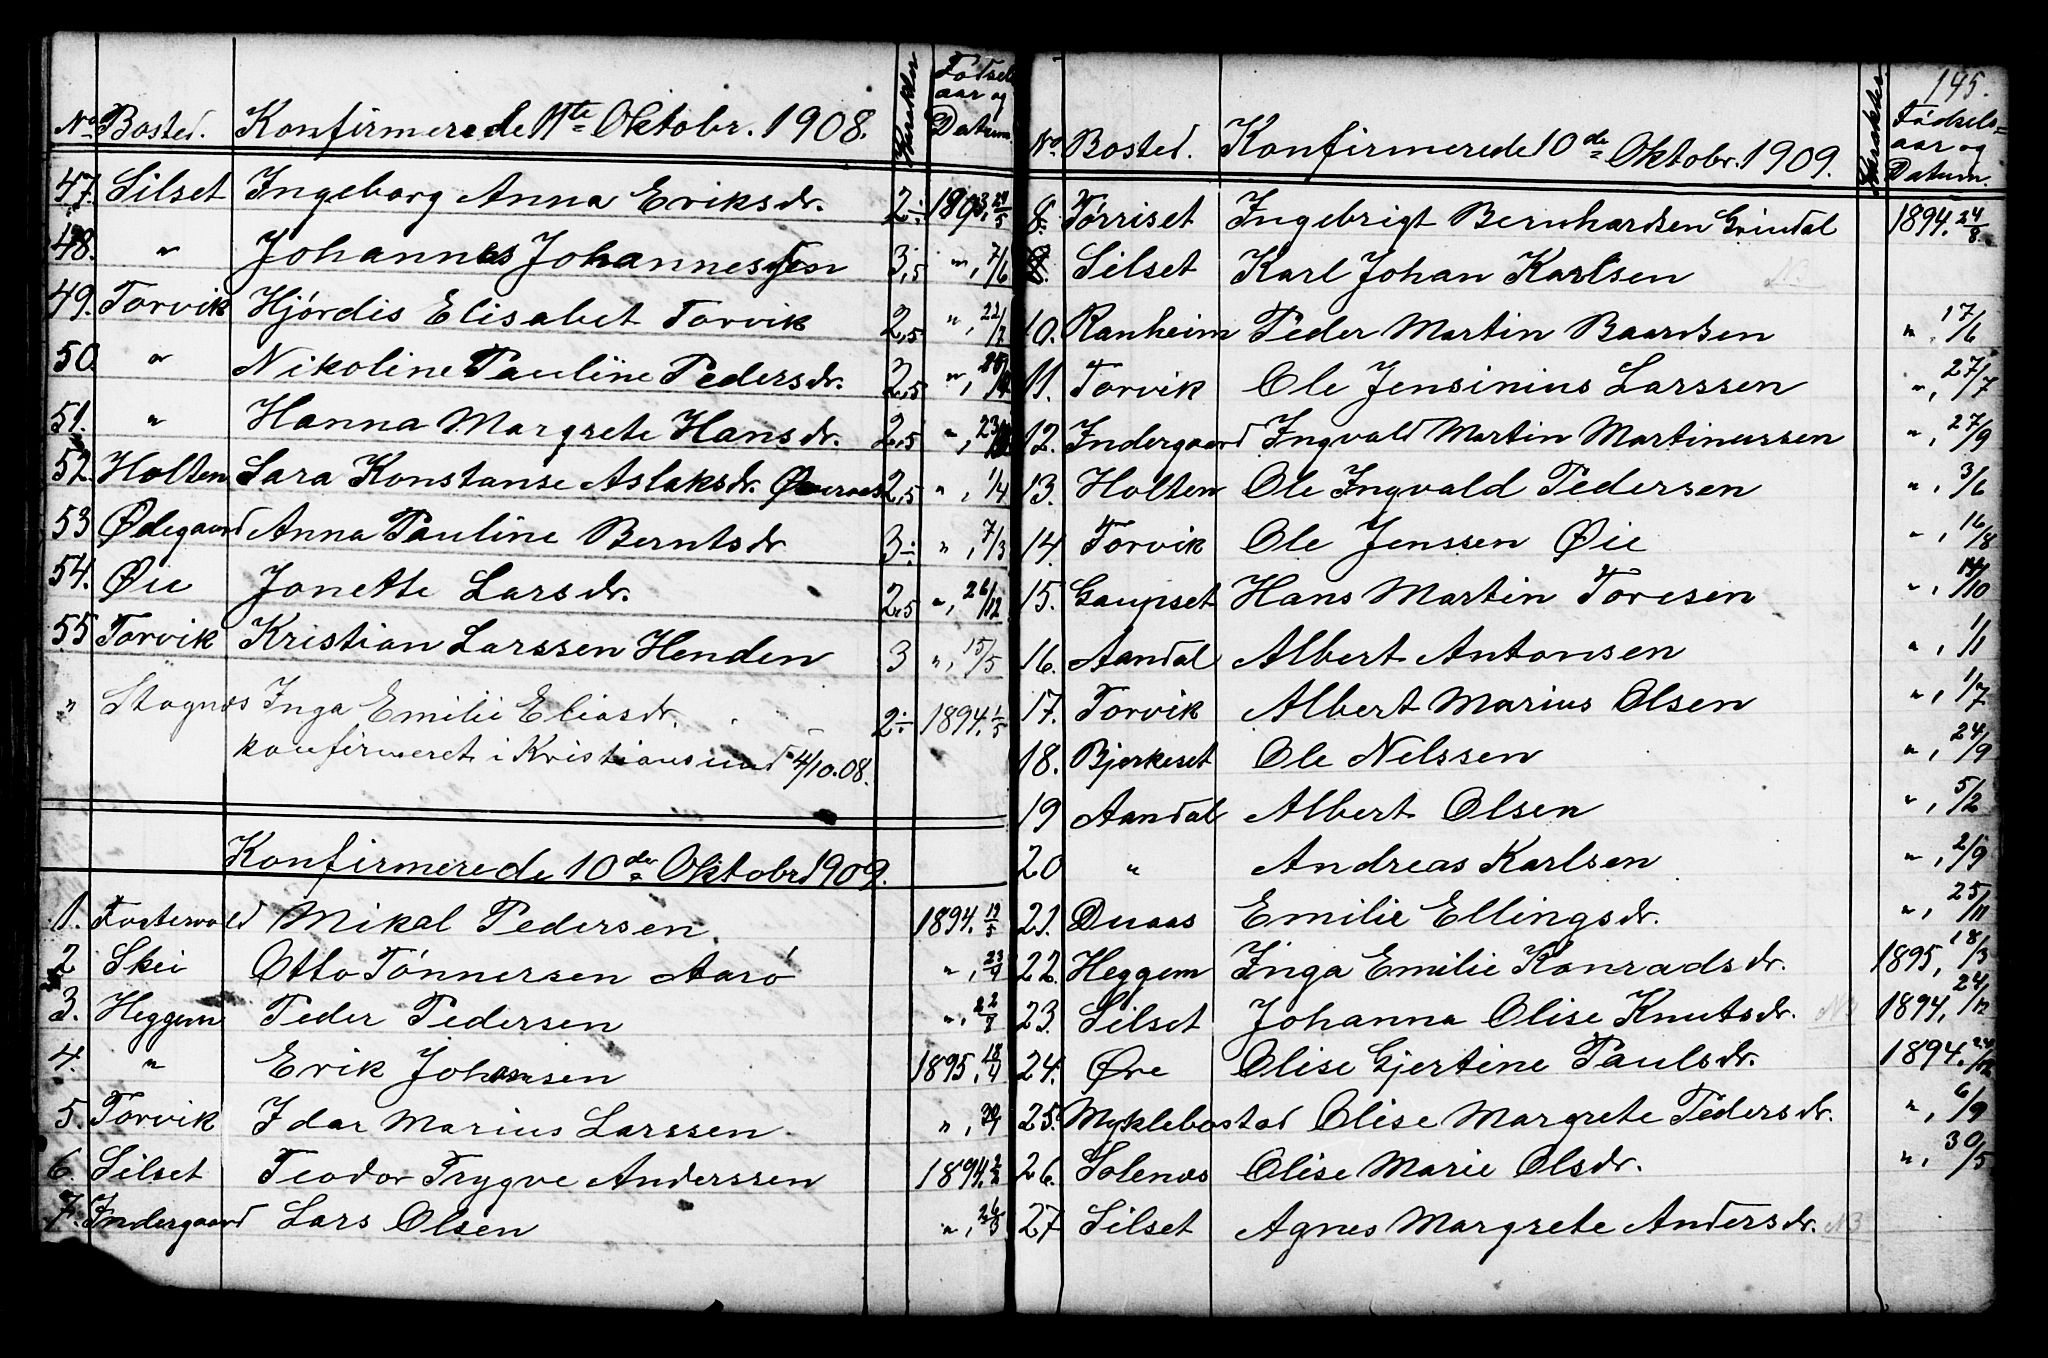 No Bosted. Konfirmerede 11te Oktobr. 1908. Karakter Fødsels aar og Datum
47. Silset Ingeborg Anna Eriksdr. 2÷ 1893, 29/5
48. " Johannes Johannessen 3,5 ", 7/6
49. Torvik Hjørdis Elisabet Torvik 2,5 ", 22/7
50. " Nikoline Pauline Pedersdr. 2,5 ",
51. " Hanna Margrete Hansdr. 2,5 ", 23/
52. Holten Lara Konstanse Aslaksdr. Øveraas 2,5 ", 1/4
53 Ødegaard Anna Pauline Berntsdr 3÷ ", 7/3
54. Øie Jonette Larsdr. 2,5 ", 26/12
55. Torvik Kristian Larssen Henden 3 ", 15/5
" Stognes Inga Emilie Eliasdr. 2÷ 1894. 1/5
konfirmeret i Kristiansund 4/10.08.
Konfirmerede 10de Oktobr 1909.
1. Fosterwold Mikal Pedersen 1894. 19/5
2 Skei Otto Tønnersen Aarø ", 23/4
3. Heggem Peder Pedersen ", 2/8
4. " Erik Johansen 1895, 18/4
5. Torvik Idar Marius Larssen ",
6. Silset Teodor Trygve Anderssen 1894.
7. Indergaard Lars Olsen ", 26/3
145.
No Bosted. Konfirmerede 10de Oktobr. 1909. Karakter Fødsels= aar og Datum.
8. Törriset Ingebrigt Bernhardsen Grindal 1894. 24/8
9. Silset Karl Johan Karlsen NB
10. Ranheim Peder Martin Baardsen ", 17/6
11. Torvik Ole Jensinius Larssen ", 27/7
12. Indergaard Ingvald Martin Martinussen ", 27/9
13. Holten Ole Ingvald Pedersen ", 3/6
14. Torvik Ole Jenssen Øie ", 16/8
15. Gaupset Hans Martin Toresen ", 14/10
16. Aandal Albert Antonsen ", 1/1
17. Torvik Albert Marius Olsen ", 1/7
18. Bjerkeset Ole Nilssen ", 24/9
19 Aandal Albert Olsen ", 5/2
20 " Andreas Karlsen ", 2/9
21. Duaas Emilie Ellingsdr. ", 25/11
22. Heggem Inga Emilie Konradsdr. 1895, 18/3
23. Silset Johanna Olise Knutsdr. NB 1894, 24/12
24. Øre Olise Gjertine Paulsdr. 1894. 24/12
25. Myklebostad Olise Margrete Pedersdr. ", 6/9
26. Solenes Olise Marie Olsdr. ", 30/5
27 Silset Agnes Margrete Andersdr. NB